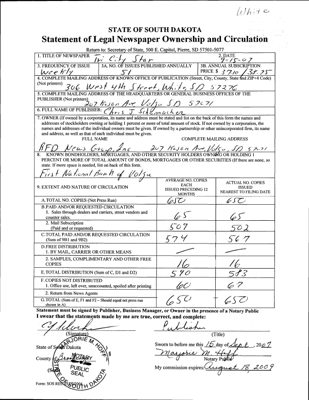 White
STATE OF SOUTH DAKOTA
Statement of Legal Newspaper Ownership and Circulation
Return to: Secretary of State, 500 E. Capitol, Pierre, SD 57501-5077
1. TITLE OF NEWSPAPER Tri City Star
2. DATE 9-15-07
3. FREQUENCY OF ISSUE Weekly
3A. NO. OF ISSUES PUBLISHED ANNUALLY 51
3B. ANNUAL SUBSCRIPTION PRICE $
4. COMPLETE MAILING ADDRESS OF KNOWN OFFICE OF PUBLICATION (Street, City, County, State and ZIP+4 Code) (Not printers)
306 West 4th Street White, SD 57276
5. COMPLETE MAILING ADDRESS OF THE HEADQUARTERS OR GENERAL BUSINESS OFFICES OF THE PUBLISHER (Not printer)
207 Kasan Ave Volga SD 57071
6. FULL NAME OF PUBLISHER: Chris J Schumacher
7. OWNER (If owned by a corporation, its name and address must be stated and also on the back of this form the names and addresses of stockholders owning or holding 1 percent or more of total amount of stock. If not owned by a corporation, the names and addresses of the individual owners must be given. If owned by a partnership or other unincorporated firm, its name and address, as well as that of each individual must be given.
FULL NAME COMPLETE MAILING ADDRESS
RFD News Group Inc 207 Kasan Ave Volga SD 57071
8. KNOWN BONDHOLDERS, MORTGAGES, AND OTHER SECURITY HOLDERS OWNING OR HOLDING 1 PERCENT OR MORE OF TOTAL AMOUNT OF BONDS, MORTGAGES OR OTHER SECURITIES (If there are none, so state. If more space is needed, list on back of this form.
First National Bank of Volga
9. EXTENT AND NATURE OF CIRCULATION
AVERAGE NO. COPIES EACH ISSUED PRECEDING 12 MONTHS
ACTUAL NO. COPIES ISSUED NEAREST TO FILING DATE
A. TOTAL NO. COPIES (Net Press Run) 650 650
B. PAID AND/OR REQUESTED CIRCULATION
1. Sales through dealers and carriers, street vendors and counter sales. 65 65
2. Mail Subscription (Paid and or requested) 509 502
C. TOTAL PAID AND/OR REQUESTED CIRCULATION (Sum of 9B1 and 9B2) 574 567
D. FREE DISTRIBUTION
1. BY MAIL, CARRIER OR OTHER MEANS
2. SAMPLES, COMPLIMENTARY AND OTHER FREE COPIES 16 16
E. TOTAL DISTRIBUTION (Sum of C, D1 and D2) 590 583
F. COPIES NOT DISTRIBUTED
1. Office use, left over, unaccounted, spoiled after printing 60 67
2. Return from News Agents
G. TOTAL (Sum of E, F1 and F2 - Should equal net press run shown in A) 650 650
Statement must be signed by Publisher, Business Manager, or Owner in the presence of a Notary Public
I swear that the statements made by me are true, correct, and complete:
(Signature)
Publisher
(Title)
State of South Dakota
County
MARJORIE M. HOFF
NOTARY PUBLIC
SEAL
SOUTH DAKOTA
Sworn to before me this 15 day of Sept, 2007
Marjorie M. Hoff
Notary Public
My commission expires: August 18, 2009
Form: SOS